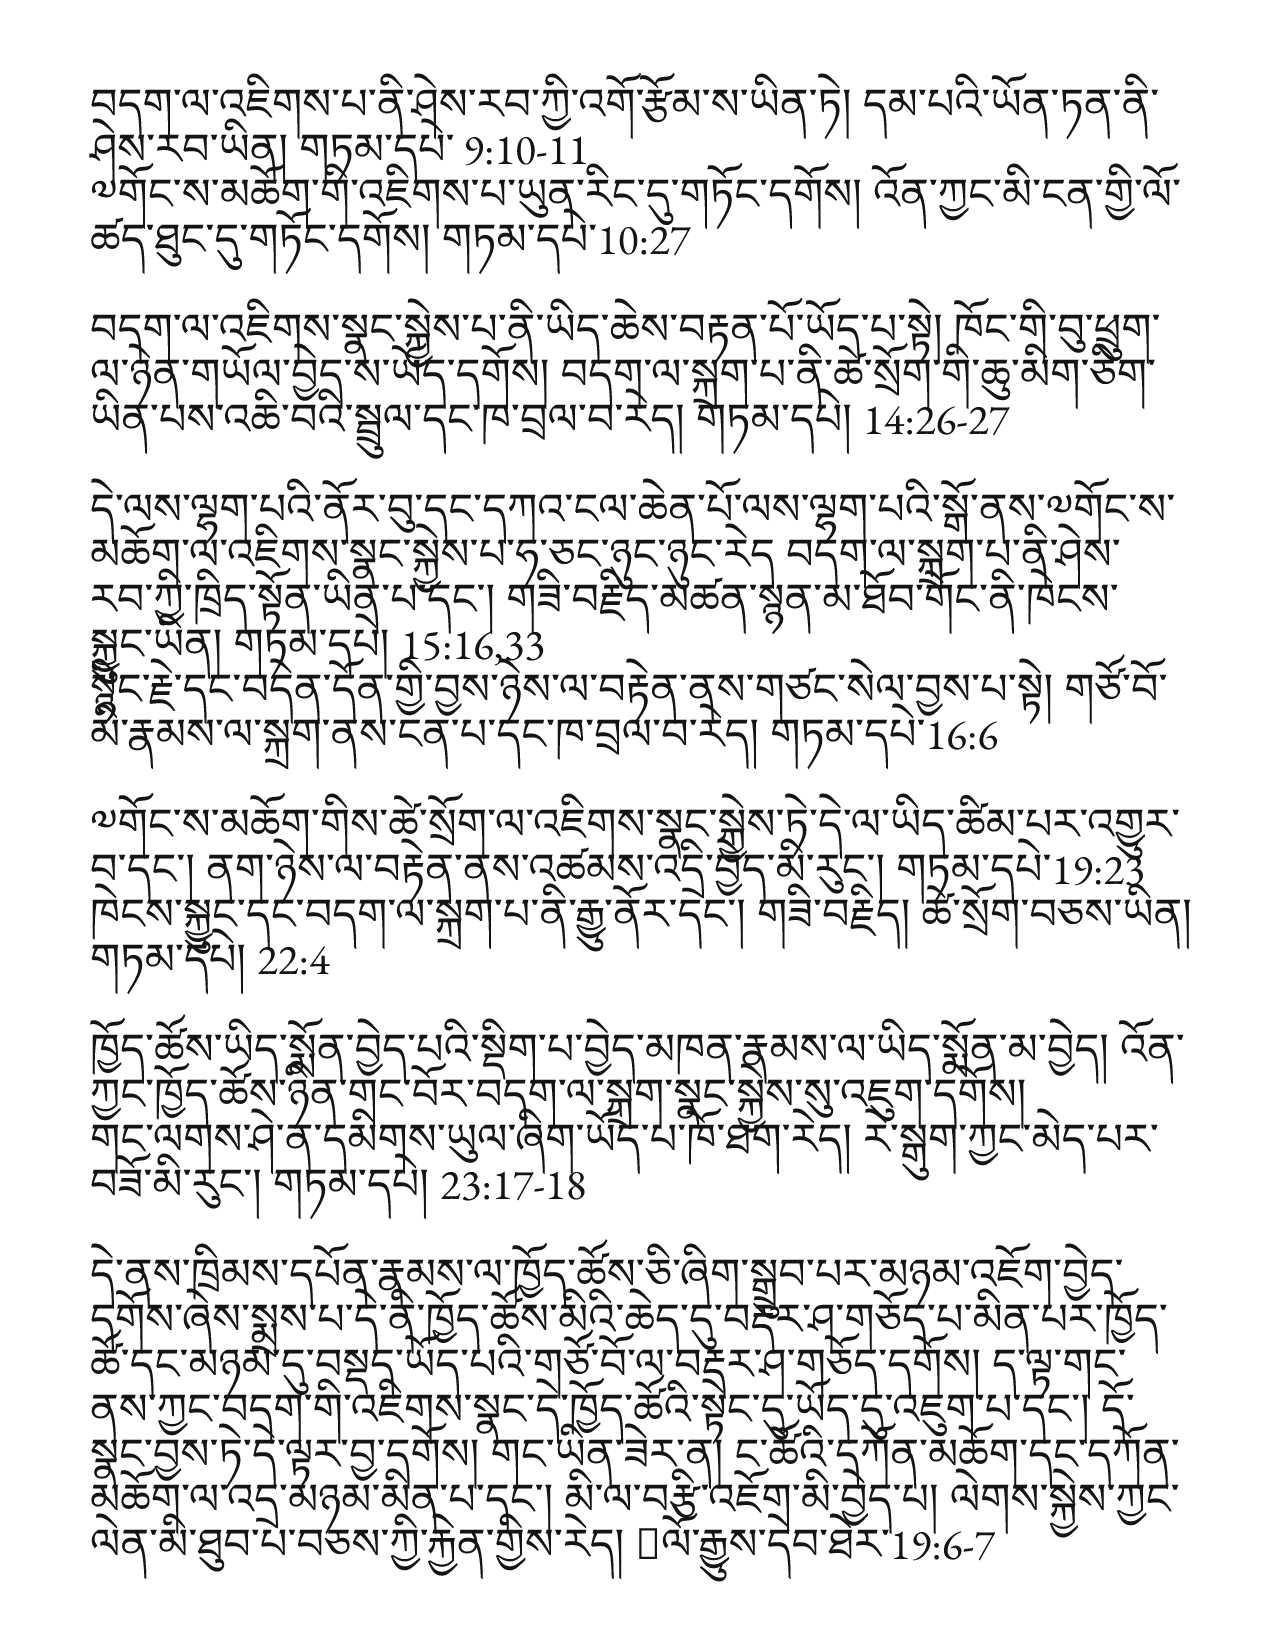 བདག་ལ་འཇིགས་པ་ནི་ཤེས་རབ་ཀྱི་འགོ་རྩོམ་ས་ཡིན་ཏེ། དམ་པའི་ཡོན་ཏན་ནི་
ཤེས་རབ་ཡིན། གཏམ་དཔེ་ 9:10-11
༧གོང་ས་མཆོག་གི་འཇིགས་པ་ཡུན་རིང་དུ་གཏོང་དགོས། འོན་ཀྱང་མི་ངན་གྱི་ལོ་
ཚད་ཐུང་དུ་གཏོང་དགོས། གཏམ་དཔེ་10:27
བདག་ལ་འཇིགས་སྣང་སྐྱེས་པ་ནི་ཡིད་ཆེས་བརྟན་པོ་ཡོད་པ་སྟེ། ཁོང་གི་བུ་ཕྲུག་
ལ་ཉེན་གཡོལ་བྱེད་ས་ཡོད་དགོས། བདག་ལ་སྐྲག་པ་ནི་ཚེ་སྲོག་གི་ཆུ་མིག་ཅིག་
ཡིན་པས་འཆི་བའི་སྦྲུལ་དང་ཁ་བྲལ་བ་རེད། གཏམ་དཔེ། 14:26-27
དེ་ལས་ལྷག་པའི་ནོར་བུ་དང་དཀའ་ངལ་ཆེན་པོ་ལས་ལྷག་པའི་སྒོ་ནས་༧གོང་ས་
མཆོག་ལ་འཇིགས་སྣང་སྐྱེས་པ་ཧ་ཅང་ཉུང་ཉུང་རེད བདག་ལ་སྐྲག་པ་ནི་ཤེས་
རབ་ཀྱི་ཁྲིད་སྟོན་ཡིན་པ་དང་། གཟི་བརྗིད་མཚན་སྙན་མ་ཐོབ་གོང་ནི་ཁེངས་
སྐྱུང་ཡིན། གཏམ་དཔེ། 15:16,33
སྙིང་རྗེ་དང་བདེན་དོན་གྱི་བྱས་ཉེས་ལ་བརྟེན་ནས་གཙང་སེལ་བྱས་པ་སྟེ། གཙོ་བོ་
མི་རྣམས་ལ་སྐྲག་ནས་ངན་པ་དང་ཁ་བྲལ་བ་རེད། གཏམ་དཔེ་16:6
༧གོང་ས་མཆོག་གིས་ཚེ་སྲོག་ལ་འཇིགས་སྣང་སྐྱེས་ཏེ་དེ་ལ་ཡིད་ཚིམ་པར་འགྱུར་
བ་དང་། ནག་ཉེས་ལ་བརྟེན་ནས་འཚམས་འདྲི་བྱེད་མི་རུང་། གཏམ་དཔེ་19:23
ཁེངས་སྐྱུང་དང་བདག་ལ་སྐྲག་པ་ནི་རྒྱུ་ནོར་དང་། གཟི་བརྗིད། ཚེ་སྲོག་བཅས་ཡིན།
གཏམ་དཔེ། 22:4
ཁྱོད་ཚོས་ཡིད་སྨོན་བྱེད་པའི་སྡིག་པ་བྱེད་མཁན་རྣམས་ལ་ཡིད་སྨོན་མ་བྱེད། འོན་
ཀྱང་ཁྱོད་ཚོས་ཉིན་གང་བོར་བདག་ལ་སྐྲག་སྣང་སྐྱེས་སུ་འཇུག་དགོས།
གང་ལགས་ཤེ་ན་དམིགས་ཡུལ་ཞིག་ཡོད་པ་ཁོ་ཐག་རེད། རེ་སྒུག་ཀྱང་མེད་པར་
བཟོ་མི་རུང་། གཏམ་དཔེ། 23:17-18
དེ་ནས་ཁྲིམས་དཔོན་རྣམས་ལ་ཁྱོད་ཚོས་ཅི་ཞིག་སྒྲུབ་པར་མཉམ་འཇོག་བྱེད་
དགོས་ཞེས་སྨྲས་པ་དེ་ནི་ཁྱོད་ཚོས་མིའི་ཆེད་དུ་བརྡར་ཤ་གཅོད་པ་མིན་པར་ཁྱོད་
ཚོ་དང་མཉམ་དུ་བསྡད་ཡོད་པའི་གཙོ་བོ་ལ་བརྡར་ཤ་གཅོད་དགོས། ད་ལྟ་གང་
ནས་ཀྱང་བདག་གི་འཇིགས་སྣང་དེ་ཁྱོད་ཚོའི་སྟེང་དུ་ཡོད་དུ་འཇུག་པ་དང་། དོ་
སྣང་བྱས་ཏེ་དེ་ལྟར་བྱ་དགོས། གང་ཡིན་ཟེར་ན། ང་ཚོའི་དཀོན་མཆོག་དང་དཀོན་
མཆོག་ལ་འདྲ་མཉམ་མིན་པ་དང་། མི་ལ་བརྩི་འཇོག་མི་བྱེད་པ། ལེགས་སྐྱེས་ཀྱང་
ལེན་མི་ཐུབ་པ་བཅས་ཀྱི་རྐྱེན་གྱིས་རེད། ལོ་རྒྱུས་དེབ་ཐེར་19:6-7